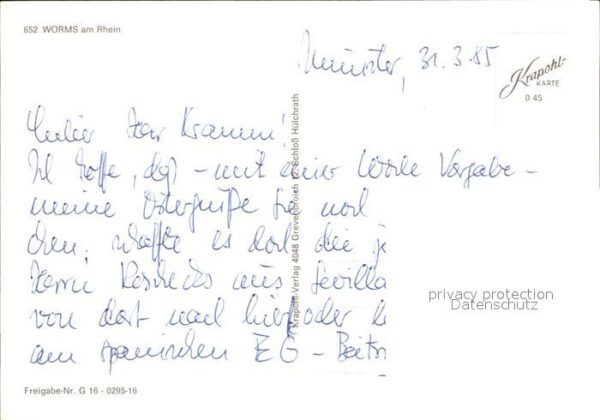 652 WORMS am Rhein
Münster, 31.3.85
Krapohl-
KARTE
O 45
Lieber Herr Kramm!
Ich hoffe, daß - mit einer Woche Vorgabe -
meine Ostergrüße Sie noch
chen. schaffte es doch die
Herrn aus Sevilla
von dort nach hier oder
am spanischen EG - Beitr
Krapohl-Verlag 4048 Grevenbroich 12, Schloß Hülchrath
privacy protection
Datenschutz
Freigabe-Nr. G 16 - 0295-16